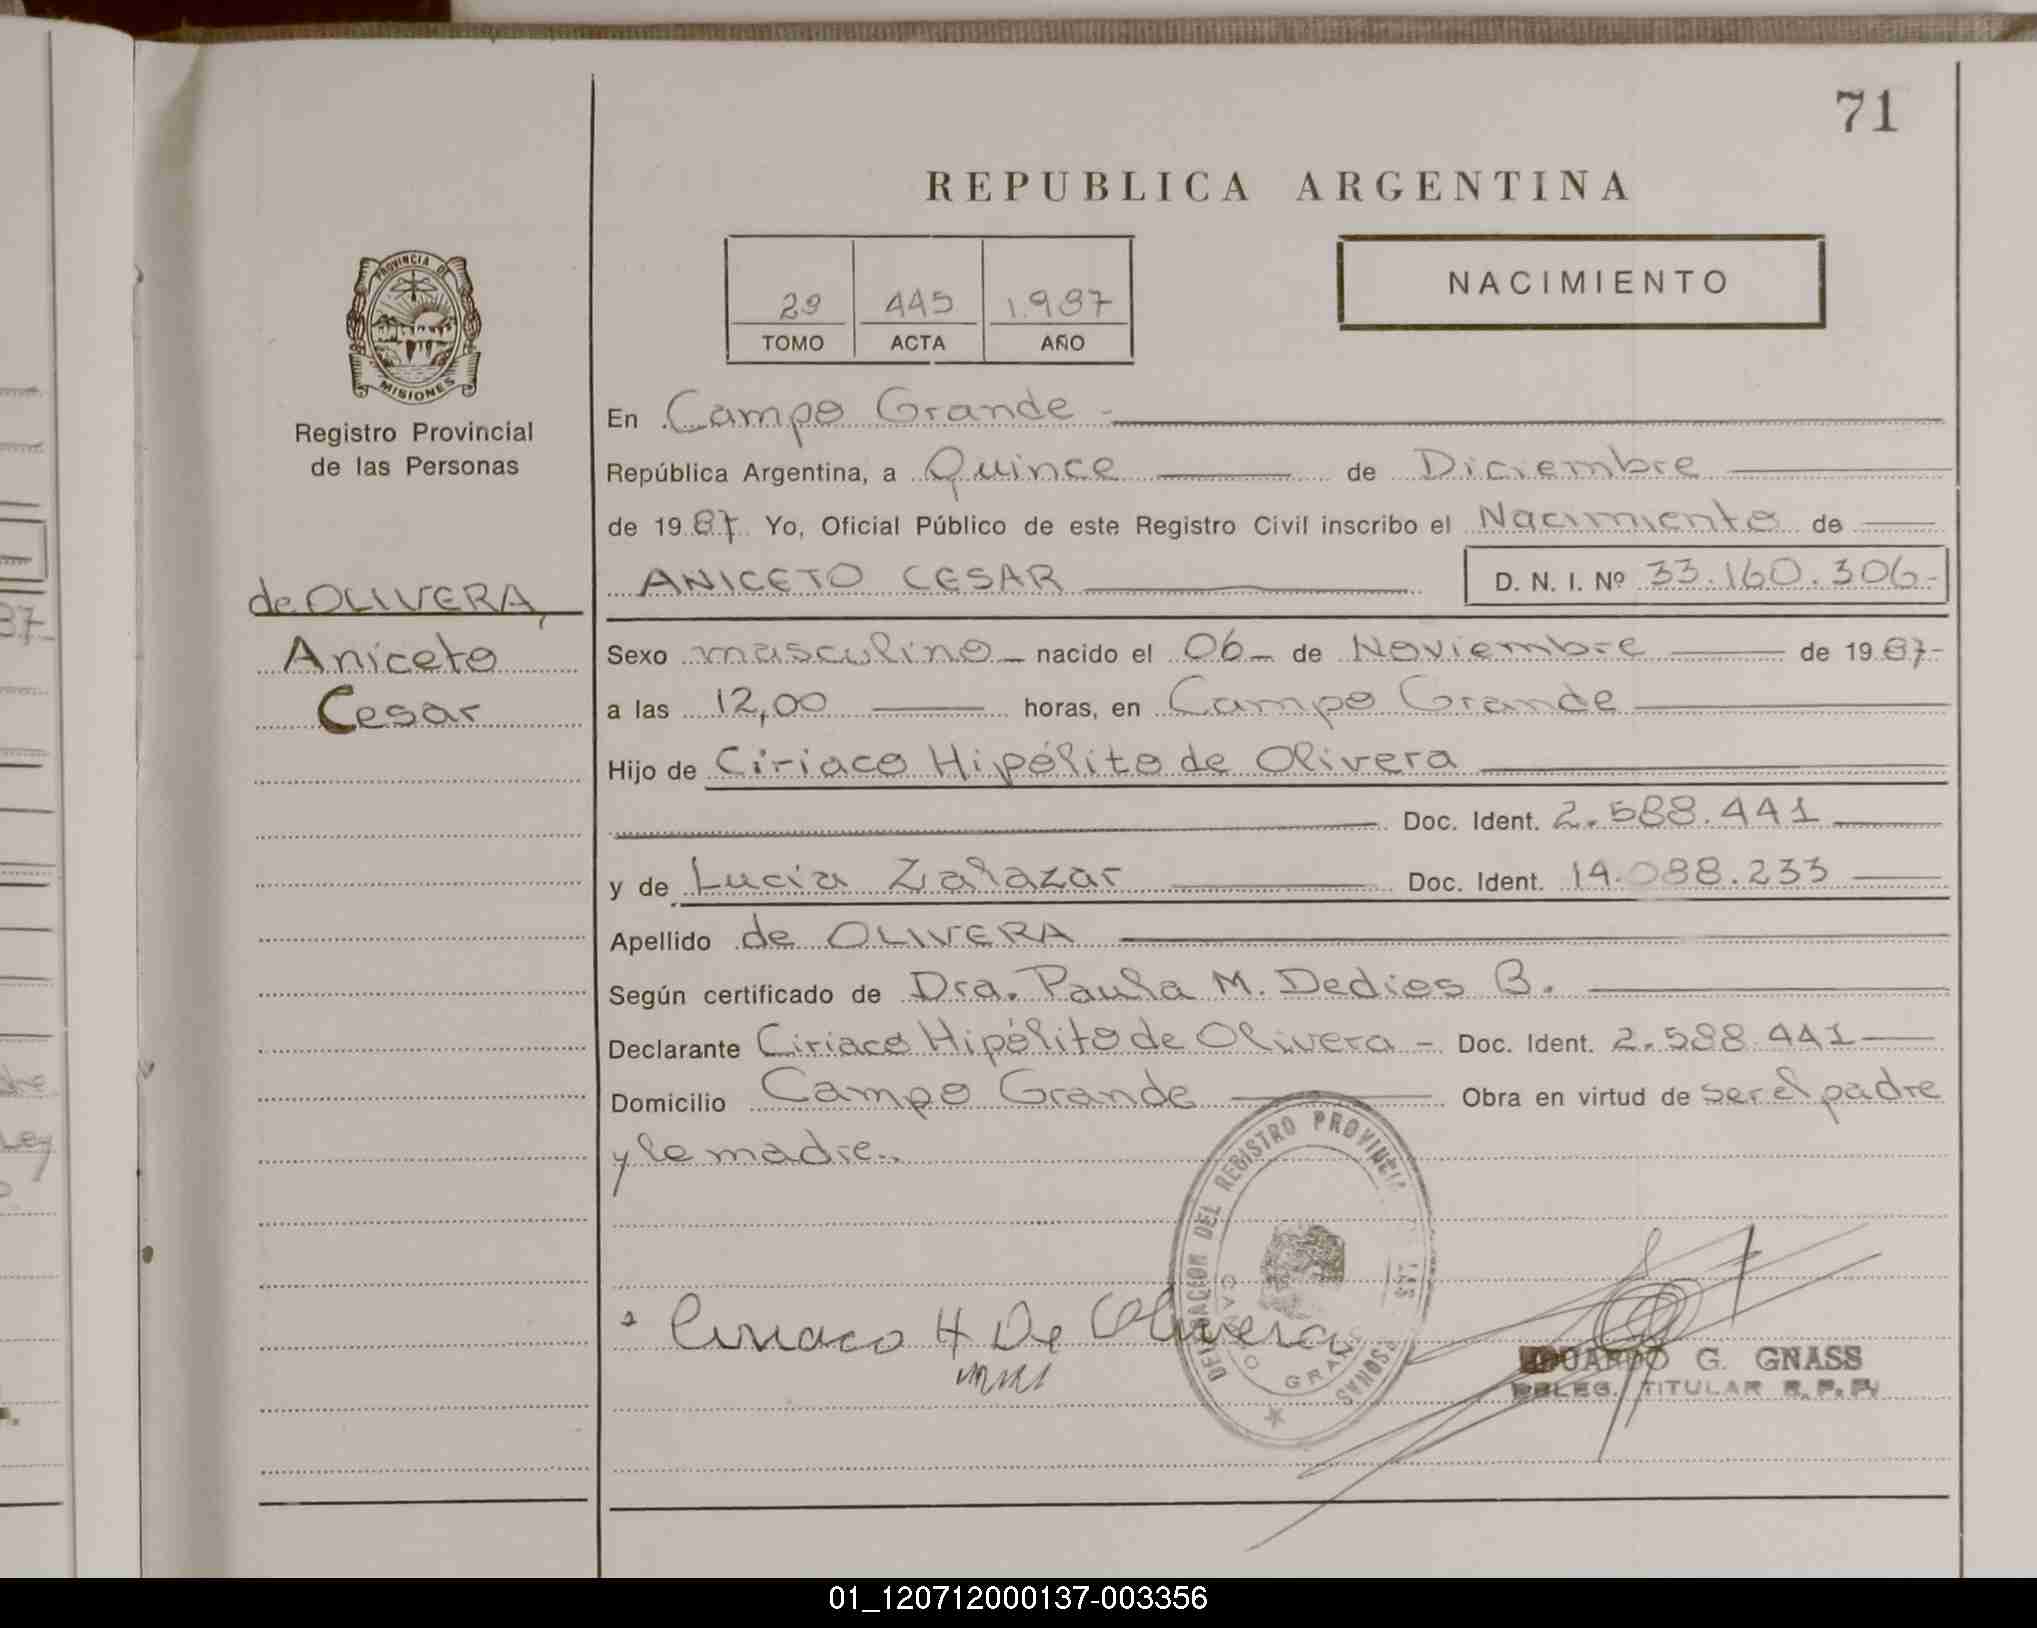 71
REPUBLICA ARGENTINA
PROVINCIA DE
MISIONES
Registro Provincial
de las Personas
de OLIVERA,
Aniceto
Cesar
29 445 1.987
TOMO ACTA AÑO
NACIMIENTO
En Campo Grande -
República Argentina, a Quince de Diciembre
de 19 87 Yo, Oficial Público de este Registro Civil inscribo el Nacimiento de
ANICETO CESAR D. N. I. Nº 33.160.306-
Sexo masculino nacido el 06 de Noviembre de 19 87-
a las 12,00 horas, en Campo Grande
Hijo de Ciriaco Hipólito de Olivera
Doc. Ident. 2.588.441
y de Lucia Zalazar Doc. Ident. 14.088.233
Apellido de OLIVERA
Según certificado de Dra. Paula M. Dedios B.
Declarante Ciriaco Hipólito de Olivera - Doc. Ident. 2.588.441
Domicilio Campo Grande Obra en virtud de ser el padre
y le madre..
DELEGACION DEL REGISTRO PROVINCIAL
CAMPO GRANDE
Ciriaco H De Olivera
EDUARDO G. GNASS
DELEG. TITULAR R. P. P.
01_120712000137-003356